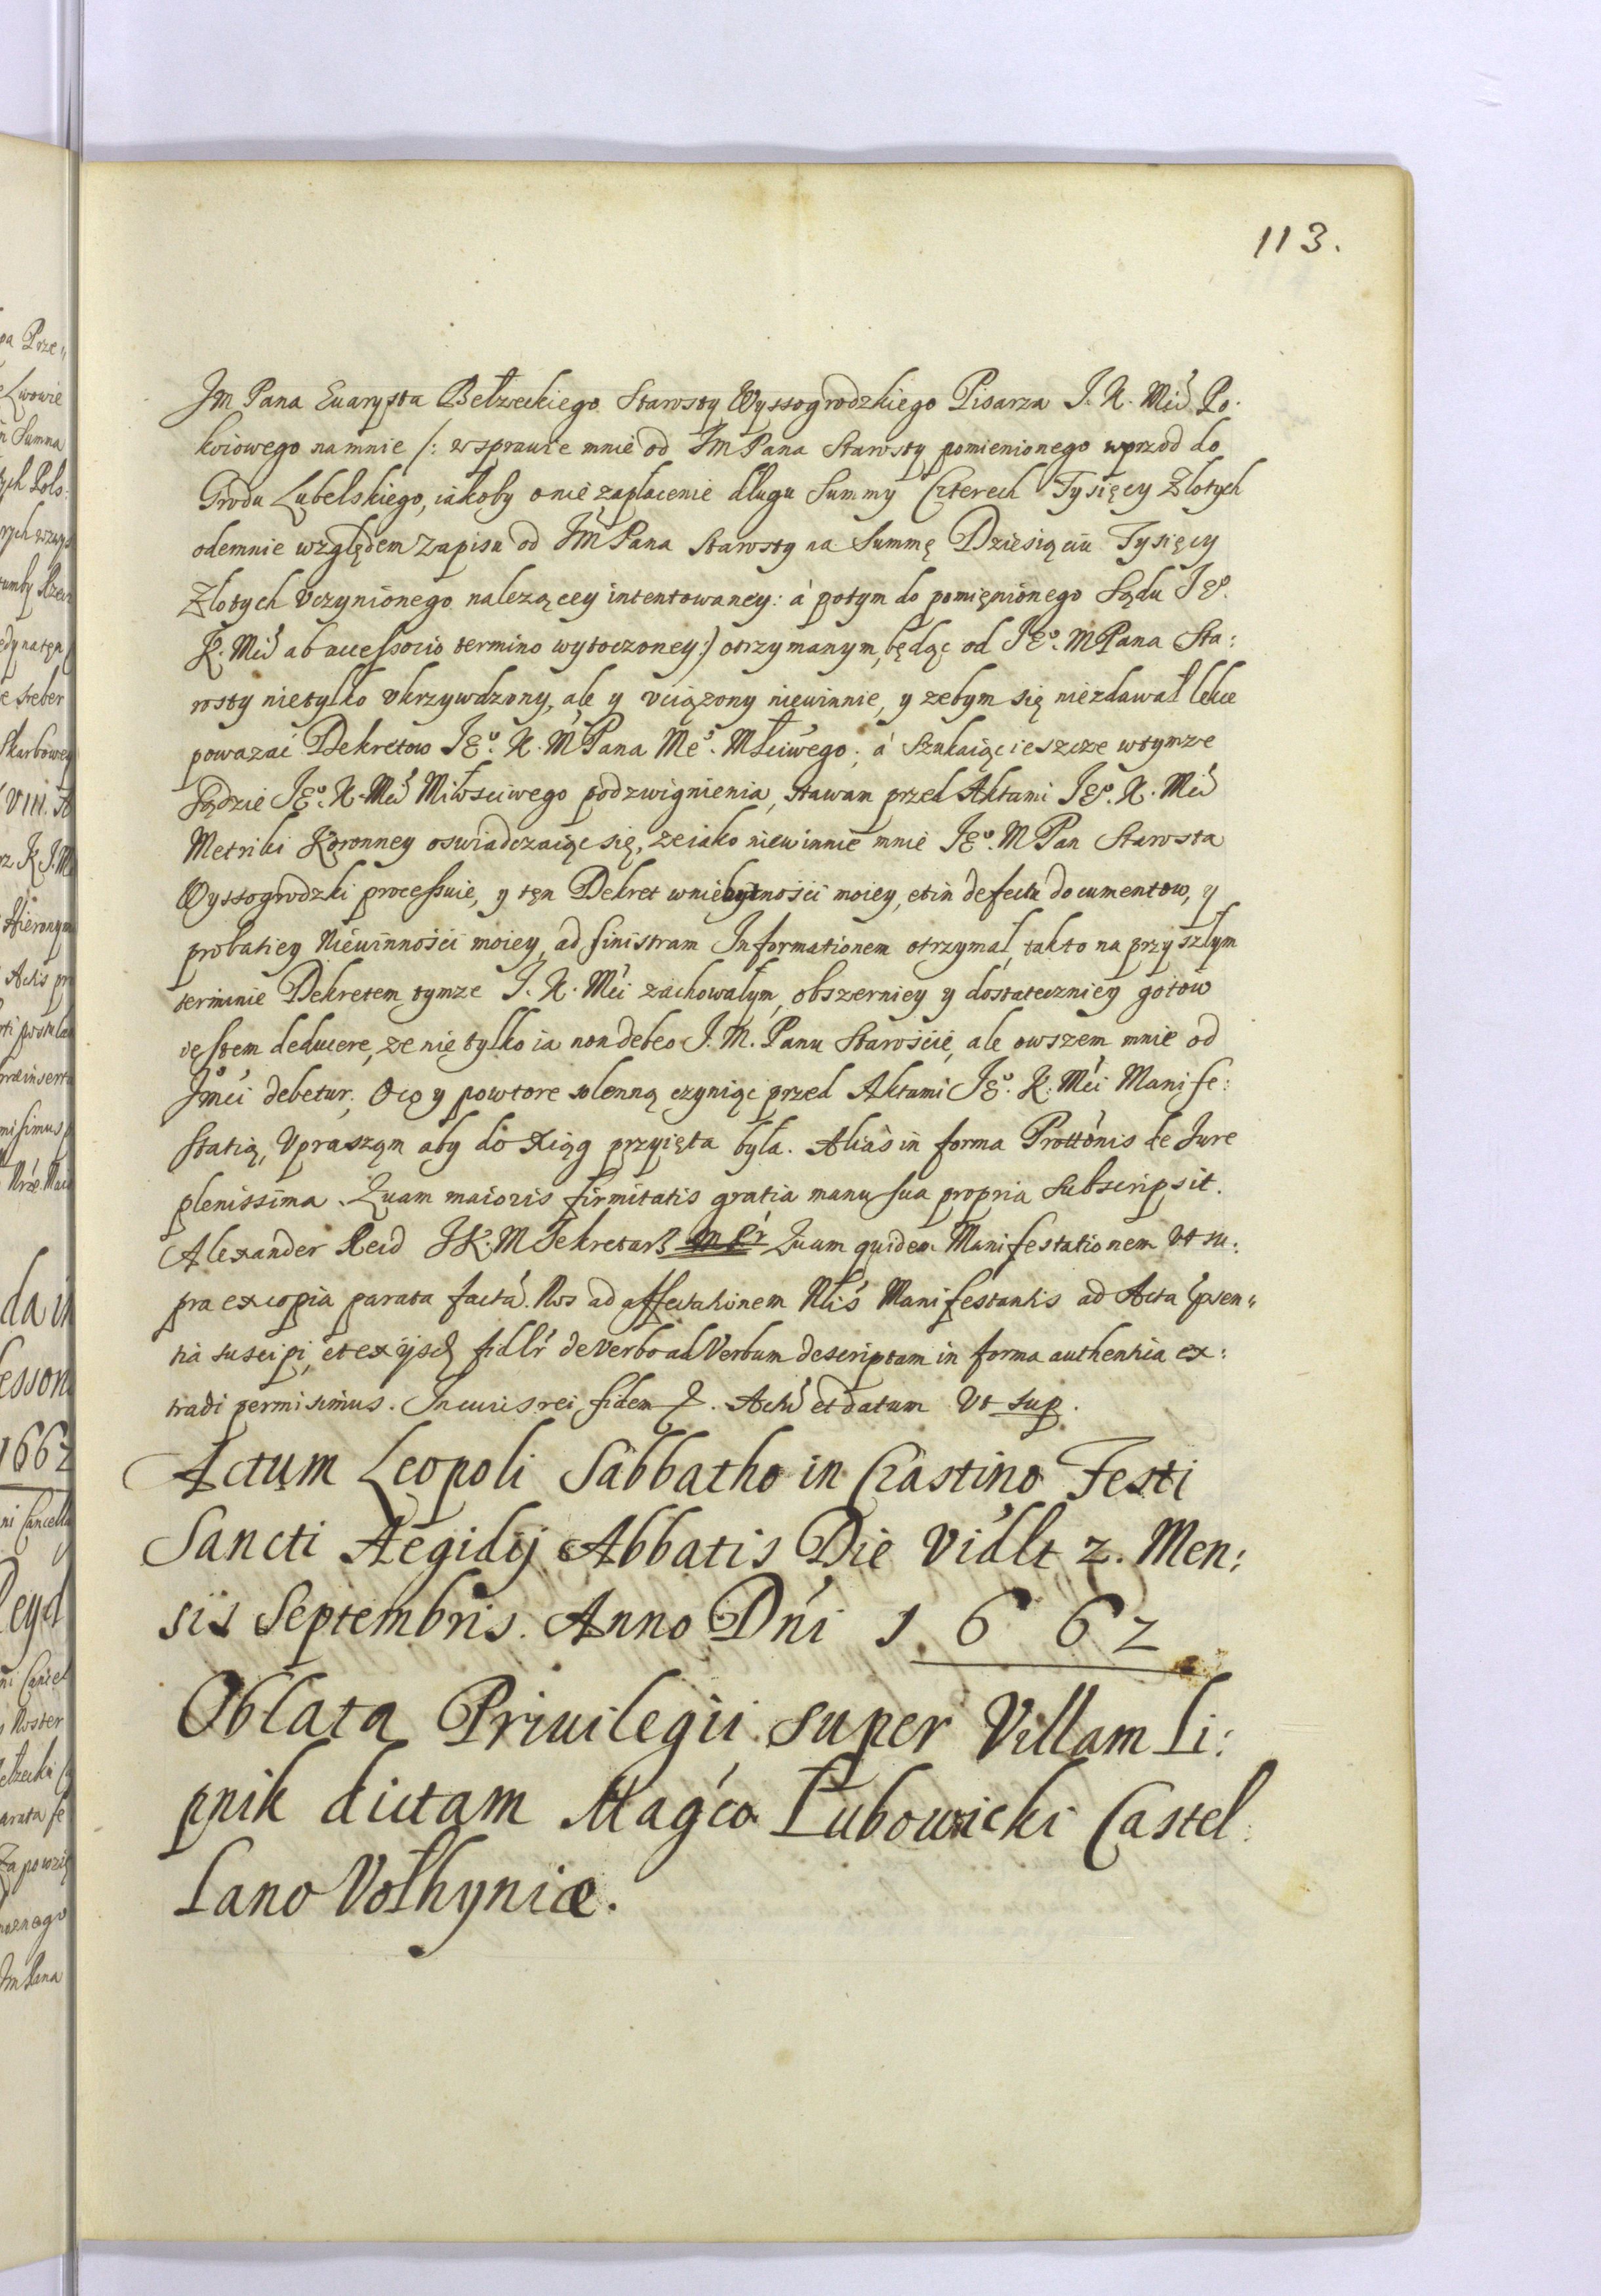 113.
JM Pana Euarysta Bełzeckiego Starosty Wyssogrodzkiego Pisarza J. K. Mći Po:
koiowego na mnie /: w sprawie mnie od JM Pana Starosty pomienionego wprzod do
Grodu Lubelskiego, iakoby o nie zapłacenie długu Summy Czterech Tysięcy Złotych
odemnie względem zapisu od JM Pana Starosty na Summę Dziesiąciu Tysięcy
Złotych Vczynionego nalezącey intentowaney: á potym do pomięnionego Sądu JEº.
K. Mći ab accessorio termino wytoczoney :/ otrzymanym, będąc od JEº. M Pana Sta:
rosty nietylko vkrzywdzony, ale y vciązony niewinnie, y zebym się niezdawał lekce
powazać Dekretow JEº. K. M Pana Meº. Młciwego; á Szukaiąc ieszcze wtymze
Sądzie JEº. K. Mći Miłosciwego podzwignienia, stawam przed Aktami JEº. K. Mći
Metriki Koronney oswiadczaiąc się, ze iako niewinnie mnie JEº. M Pan Starosta
Wyssogrodzki processuie, y tęn Dekret wniebytności moiey, et in defectu documentow, y
probatiey Niewinności moiey, ad sinistram Informationem otrzymał, tak to na przyszłym
terminie Dekretem tymze J. K. Mći zachowałym, obszerniey y dostateczniey gotow
iestem deducere, ze nie tylko ia non debeo J. M. Panu Starościé, ale owszem mnie od
Jmći debetur. Oco y powtore solenną czyniąc przed Aktami JEº. K. Mći Manife:
statią, Vpraszam aby do Xiąg przyięta była. Aliàs in forma Prottónis de Jure
plenissima. Quam maioris firmitatis gratia manu sua propria Subscripsit.
Alexander Reid JK. M Sekretarz mpr Quam quidem Manifestationem Vt su:
pra ex copia parata factá. Nos ad affectationem Nłis Manifestantis ad Acta pńsen„
tia suscipi, et ex ijsd fidłr de Verbo ad Verbum descriptam in forma authentica ex:
tradi permisimus. In cuius rei fidem &. Actú et datum Vt sup.
Actum Leopoli Sabbatho in Crastino Festi
Sancti Aegidij Abbatis Die Vidlt 2. Men:
sis Septembris. Anno Dńi 1662
Oblata Priuilegii super Villam Li:
pnik dictam Magćo Łubowicki Castel:
lano Vołhyniæ.